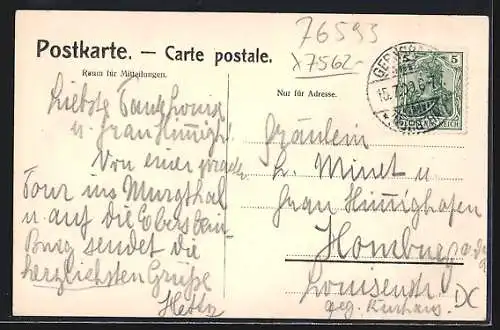 76593
x7562-
Postkarte. — Carte postale.
Raum für Mitteilungen.
Nur für Adresse.
5
DEUTSCHES REICH
Liebste Tante Louis
u. Frau Hünigh.
Von einer
Tour ins Murgthal
u. auf die Eberstein
Burg sendet die
herzlichsten Grüße
Hetta
Fräulein
L. Minet u
Frau Hünighofen
Homburg v. d. H
Louisenstr.
geg. Kurhaus.
DC